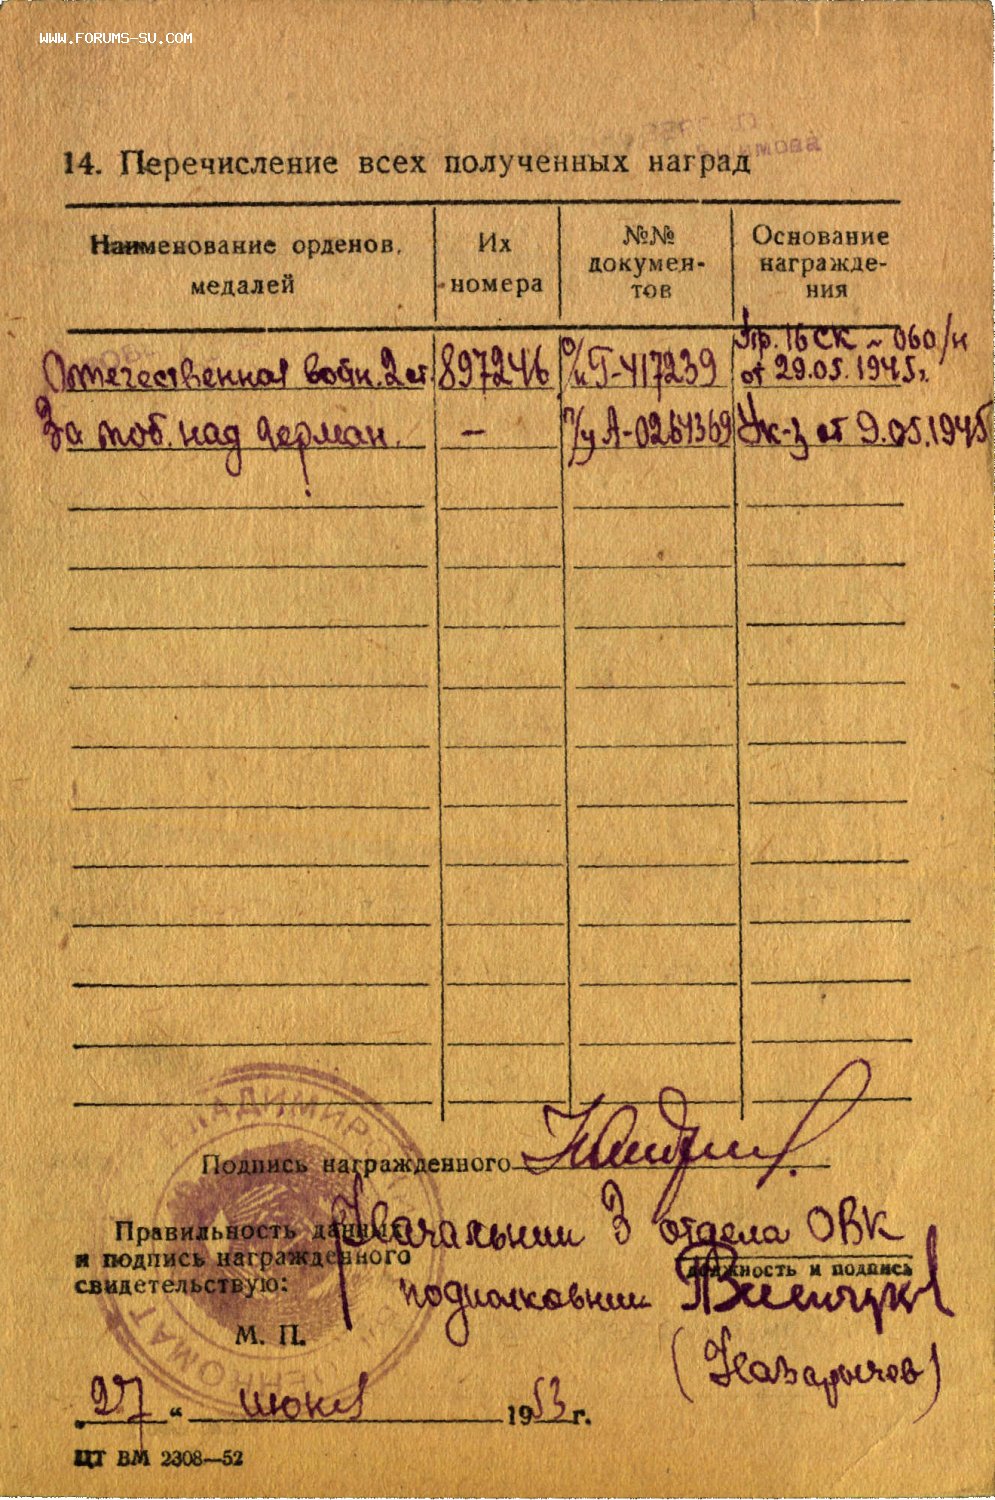 WWW.FORUMS-SU.COM
14. Перечисление всех полученных наград
Наименование орденов, медалей
Их номера
№№ докумен-
тов
Основание
награжде-
ния
Отечественная войн. 2 ст. 897246 о/к Г-417239 Пр. 16 СК ~ 060/н
от 29.05.1945г.
За поб. над герман. — п/у А-0261369 Ук-з от 9.05.1945
Подпись награжденного
Правильность данных
и подпись награжденного
свидетельствую:
Начальник 3 отдела ОВК
должность и подпись
подполковник
М. П.
(Назарычев)
„27“ июня 1953 г.
ЦТ ВМ 2308—52